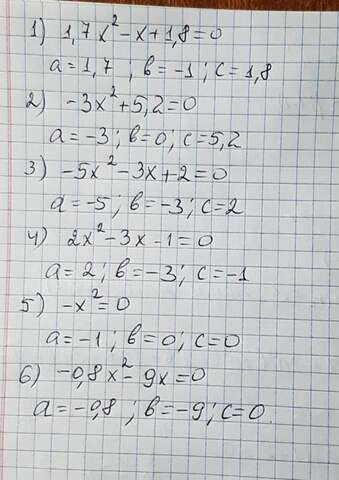 1) 1,7x²-x+1,8=0
a=1,7 ; в=-1; c=1,8
2) -3x²+5,2=0
a=-3; в=0; c=5,2
3) -5x²-3x+2=0
a=-5; в=-3; c=2
4) 2x²-3x-1=0
a=2; в=-3; c=-1
5) -x²=0
a=-1; в=0; c=0
6) -0,8x²-9x=0
a=-0,8 ; в=-9; c=0